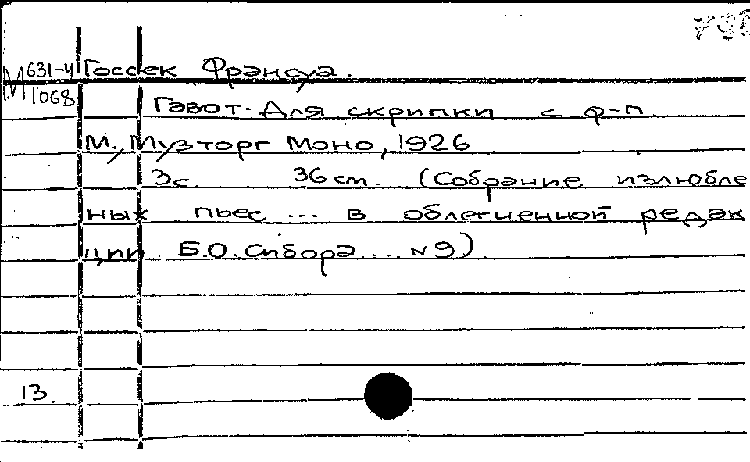 М 631-4 Госсек Франсуа.
1068
Гавот. Для скрипки с ф-п
М., Музторг Моно, 1926
3с. 36 cm. (Собрание излюблен
ных пьес ... в облегченной редак
ции Б.О. Сибора ... N9)
13.